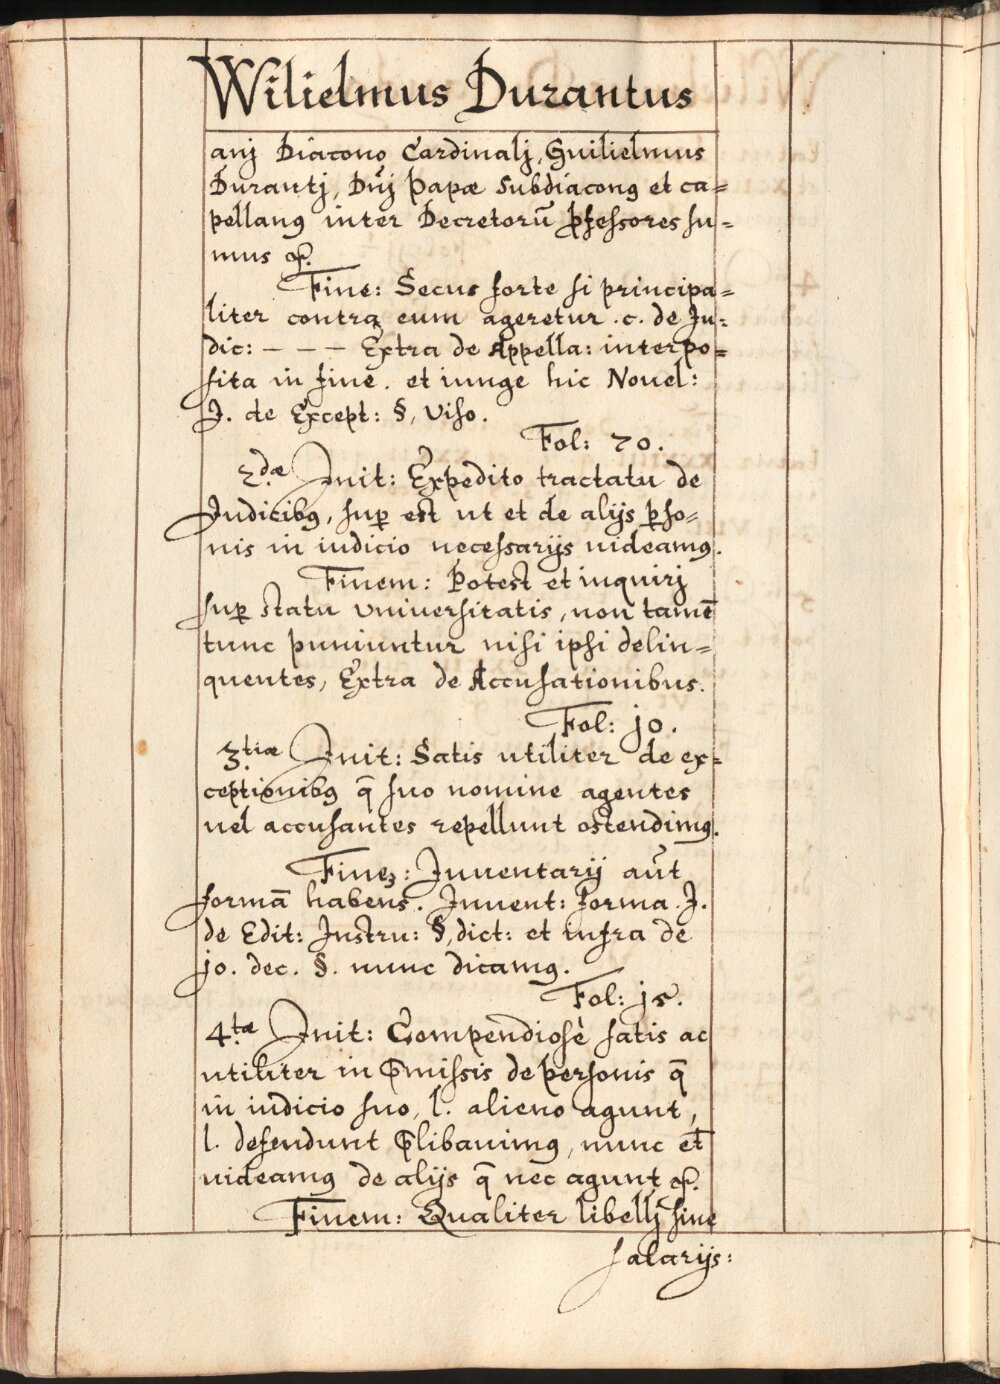 Wilielmus Durantus
anj Diacono Cardinalj, Guilielmus
Durantj, Dñj Papæ Subdiaconꝰ et ca=
pellanꝰ inter Decretorũ ꝓfessores su=
mus &.
Fine: Secus forte si principa=
liter contra eum ageretur .c. de Ju=
dic: – – – Extra de Appella: interpo=
sita in fine. et iunge hic Nouel:
J. de Except: §, viso.
Fol: 70.
2.dæ Jnit: Expedito tractatu de
Judicibꝰ, suꝑ est ut et de alijs ꝑso=
nis in iudicio necessarijs uideamꝰ.
Finem: Potest et inquirj
suꝑ statu vniuersitatis, non tamē
tunc puniuntur nisi ipsi delin=
quentes, Extra de Accusationibus.
Fol: jo.
3.tiæ Jnit: Satis utiliter de ex=
ceptionibꝰ q̄ suo nomine agentes
uel accusantes repellunt ostendimꝰ.
Fineʒ: Jnuentarij aũt
formā habens. Jnuent: forma. J.
de Edit: Jnstru: §, dict: et infra de
jo. dec. §. nunc dicamꝰ.
Fol: j5.
4.tæ Jnit: Compendiosè satis ac
utiliter in p̄missis de personis q̄
in iudicio suo, l. alieno agunt,
l. defendunt p̄libauimꝰ, nunc et̄
uideamꝰ de alijs q̄ nec agunt &.
Finem: Qualiter libellj sine
salarijs: